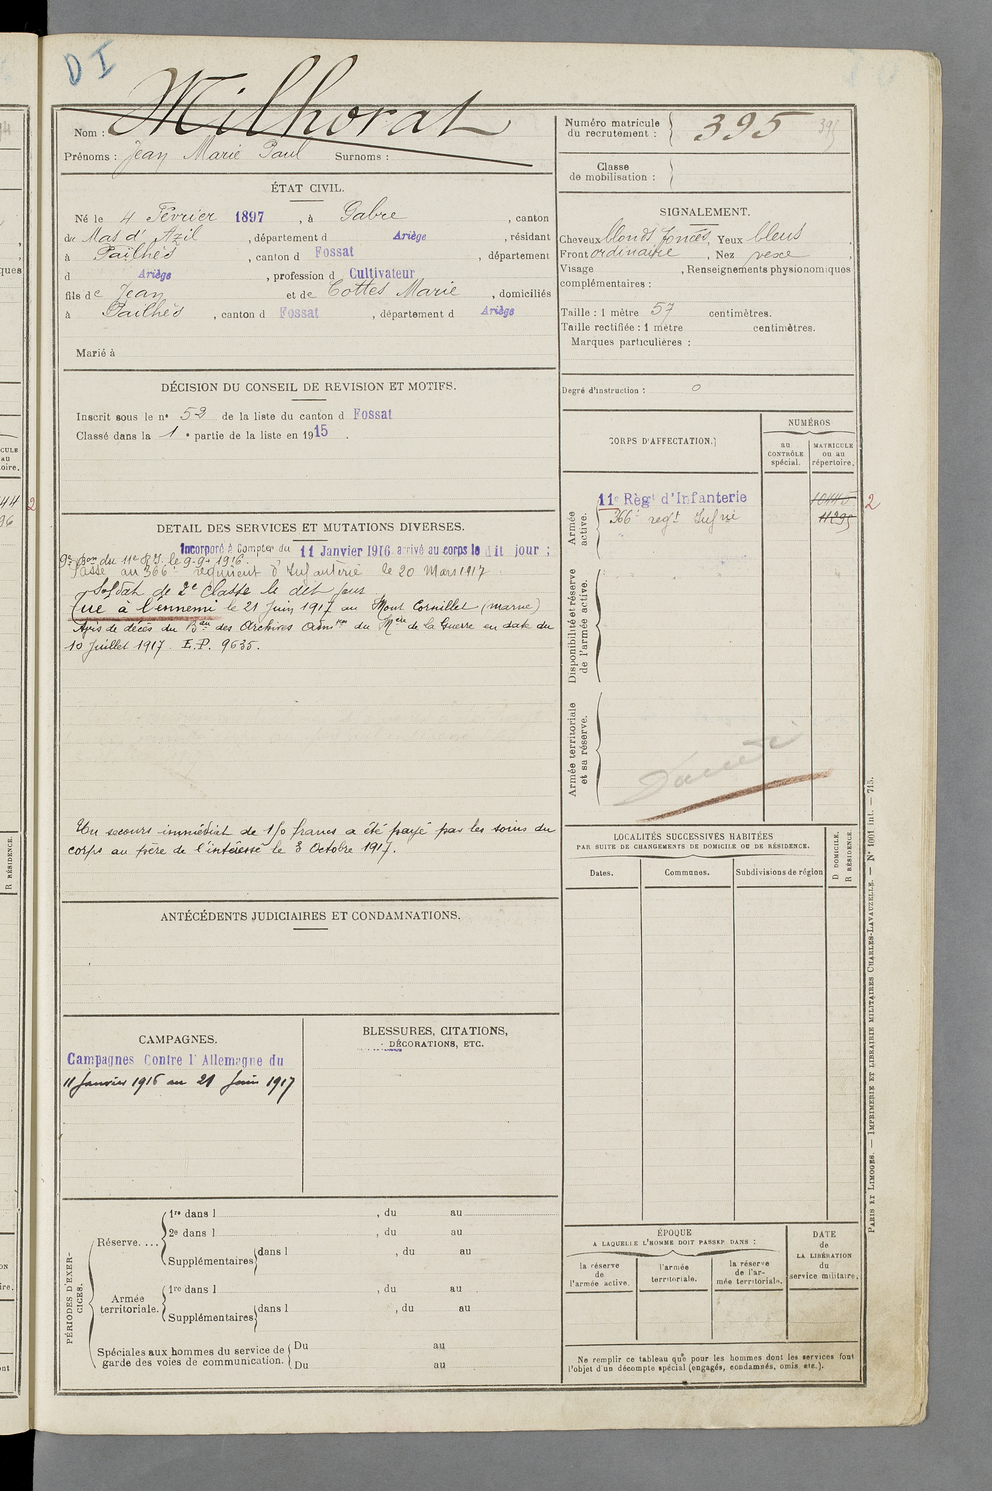 DI
Nom : Milhorat
Prénoms : Jean Marie Paul Surnoms :
Numéro matricule du recrutement : 395 395
Classe de mobilisation :
ÉTAT CIVIL.
Né le 4 Février 1897, à Gabre, canton
du Mas d'Azil, département d Ariège, résidant
à Pailhès, canton d Fossat, département
d Ariège, profession d Cultivateur
fils de Jean et de Cottes Marie, domiciliés
à Pailhès, canton d Fossat, département d Ariège
Marié à
SIGNALEMENT.
Cheveux blonds foncés, Yeux bleus,
Front ordinaire, Nez vexe
Visage , Renseignements physionomiques
complémentaires :
Taille : 1 mètre 57 centimètres.
Taille rectifiée : 1 mètre centimètres.
Marques particulières :
Degré d'instruction : 0
DÉCISION DU CONSEIL DE REVISION ET MOTIFS.
Inscrit sous le n° 52 de la liste du canton d Fossat
Classé dans la 1e partie de la liste en 1915.
DETAIL DES SERVICES ET MUTATIONS DIVERSES.
Incorporé à Compter du 11 Janvier 1916 arrivé au corps le dit jour ;
du 11e RI. le 9-9-1916.
Passé au 366e régiment d'Infanterie le 20 Mars 1917
Soldat de 2e Classe le dit jour
Tué à l'ennemi le 21 Juin 1917 au Mont Cornillet (marne)
Avis de décès du Bau des Archives Admves du Mère de la Guerre en date du
10 juillet 1917. E.P. 9635.
Un secours immédiat de 150 francs a été payé par les soins du
corps au père de l'intéressé le 3 Octobre 1917.
CORPS D'AFFECTATION.
NUMÉROS
au CONTRÔLE spécial.
MATRICULE ou au répertoire.
Armée active.
11e Régt d'Infanterie 10446 2
366e regt Infrie 11295
Disponibilité et réserve de l'armée active.
Armée territoriale et sa réserve.
Décédé
LOCALITÉS SUCCESSIVES HABITÉES
PAR SUITE DE CHANGEMENTS DE DOMICILE OU DE RÉSIDENCE.
Dates. Communes. Subdivisions de région
D DOMICILE. R RÉSIDENCE.
ANTÉCÉDENTS JUDICIAIRES ET CONDAMNATIONS.
CAMPAGNES.
Campagnes Contre l'Allemagne du
11 Janvier 1916 au 21 Juin 1917
BLESSURES, CITATIONS,
DÉCORATIONS, ETC.
PÉRIODES D'EXERCICES.
Réserve....
1re dans l , du au
2e dans l , du au
Supplémentaires dans l , du au
Armée territoriale.
1re dans l , du au
Supplémentaires dans l , du au
Spéciales aux hommes du service de garde des voies de communication.
Du au
Du au
ÉPOQUE
A LAQUELLE L'HOMME DOIT PASSER DANS :
la réserve de l'armée active.
l'armée territoriale.
la réserve de l'armée territoriale.
DATE de LA LIBÉRATION du service militaire.
Ne remplir ce tableau que pour les hommes dont les services font
l'objet d'un décompte spécial (engagés, condamnés, omis, etc.).
PARIS ET LIMOGES. — IMPRIMERIE ET LIBRAIRIE MILITAIRES CHARLES-LAVAUZELLE. — N° 1001 int. — 715.